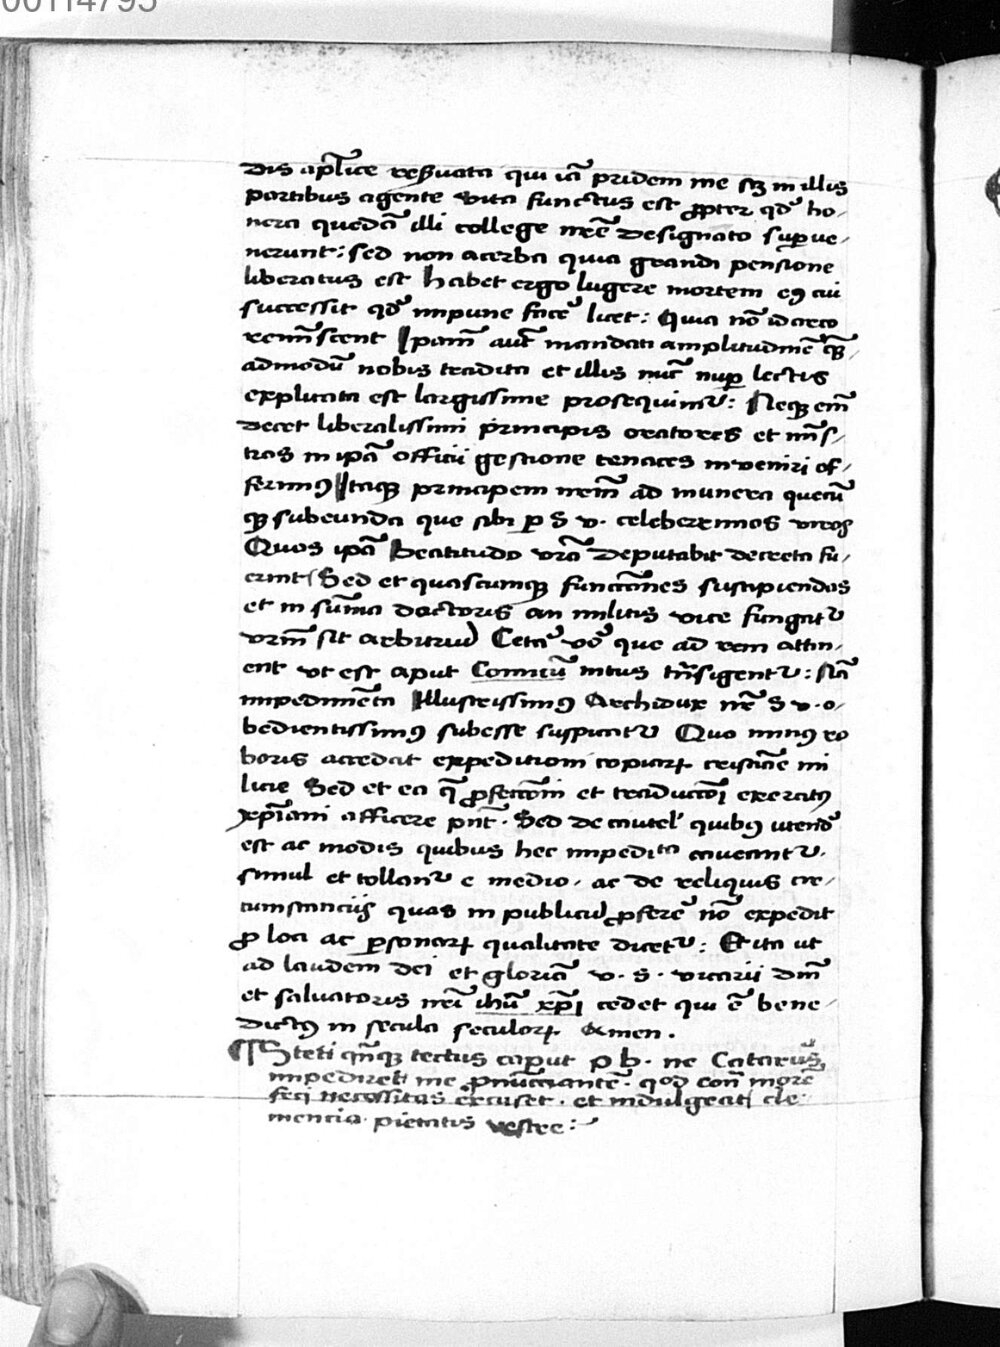 00114795
dis ap̃lice reßuata qui iã pridem me sꝫ in illis
partibus agente vita functus est ꝓpter qd̾ ho-
nera quedã illi college nr̃e designato suꝑue-
nerunt: sed non acerba quia grandi pensione
liberatus est habet ergo lugere mortem eꝰ cui
successit qd̾ impune face᷑ licet: Quia nõ idcirco
remĩscent Ipam̃ aut̃ mandati amplitudinẽ ꝙ̃-
admodũ nobis tradita et illis nuc̃ nuꝑ lectis
explicata est largissime prosequimur̾: Neqꝫ em̃
decet liberalissimi principis oratores et mĩs-
tros in ipã officii gestione tenaces inveniri of-
ferimꝰ Itaqꝫ principem nrm̃ ad munera quecũ
qꝫ subeunda que sibi p S v. celeberrimos viros
Quos ipã Beatitudo vrã deputabit decreta fu-
erint Sed et quascumqꝫ functiões suscipiendas
et in sum̃a doctoris an militis vice fungat᷑
vrm̃ sit arbitriũ Cete᷑ v̾o que ad rem attin-
ent vt est aput Comicũ intus trñsigent᷑: siã
impedimẽta Illustrissimꝰ Archidux nr̃ S v. o-
bedientissimꝰ subesse suspicat᷑ Quo minꝰ ro
boris accedat expeditioni copiarꝝ cristiãe mi
licie Sed et ea q̃ ꝓfectiõni et traductiõi exercitꝰ
xp̃iani afficere pñt. Sed de cautel̾ quibꝰ utend̾
est ac modis quibus hec impedita caveant᷑.
simul et tollant᷑ e medio, ac de reliquis cir-
cumstanciis quas in publicũ ꝓferre᷑ nõ expedit
ꝓ loci ac ꝑsonarꝝ qualitate dicet᷑: Et ita ut
ad laudem dei et gloriã v. s. vicarii dm̃
et salvatoris nr̃i ihũ xp̃i cedet qui ẽ bene-
dictꝰ in secula seculorꝝ Amen.
¶ Steti qm̃qꝫ tectus caput p b. ne Catarus̃
impediret me ꝓnũciantẽ. qod con̾ morẽ
feci necessitas excuset. et indulgeat cle
mencia pietatis vestre:-